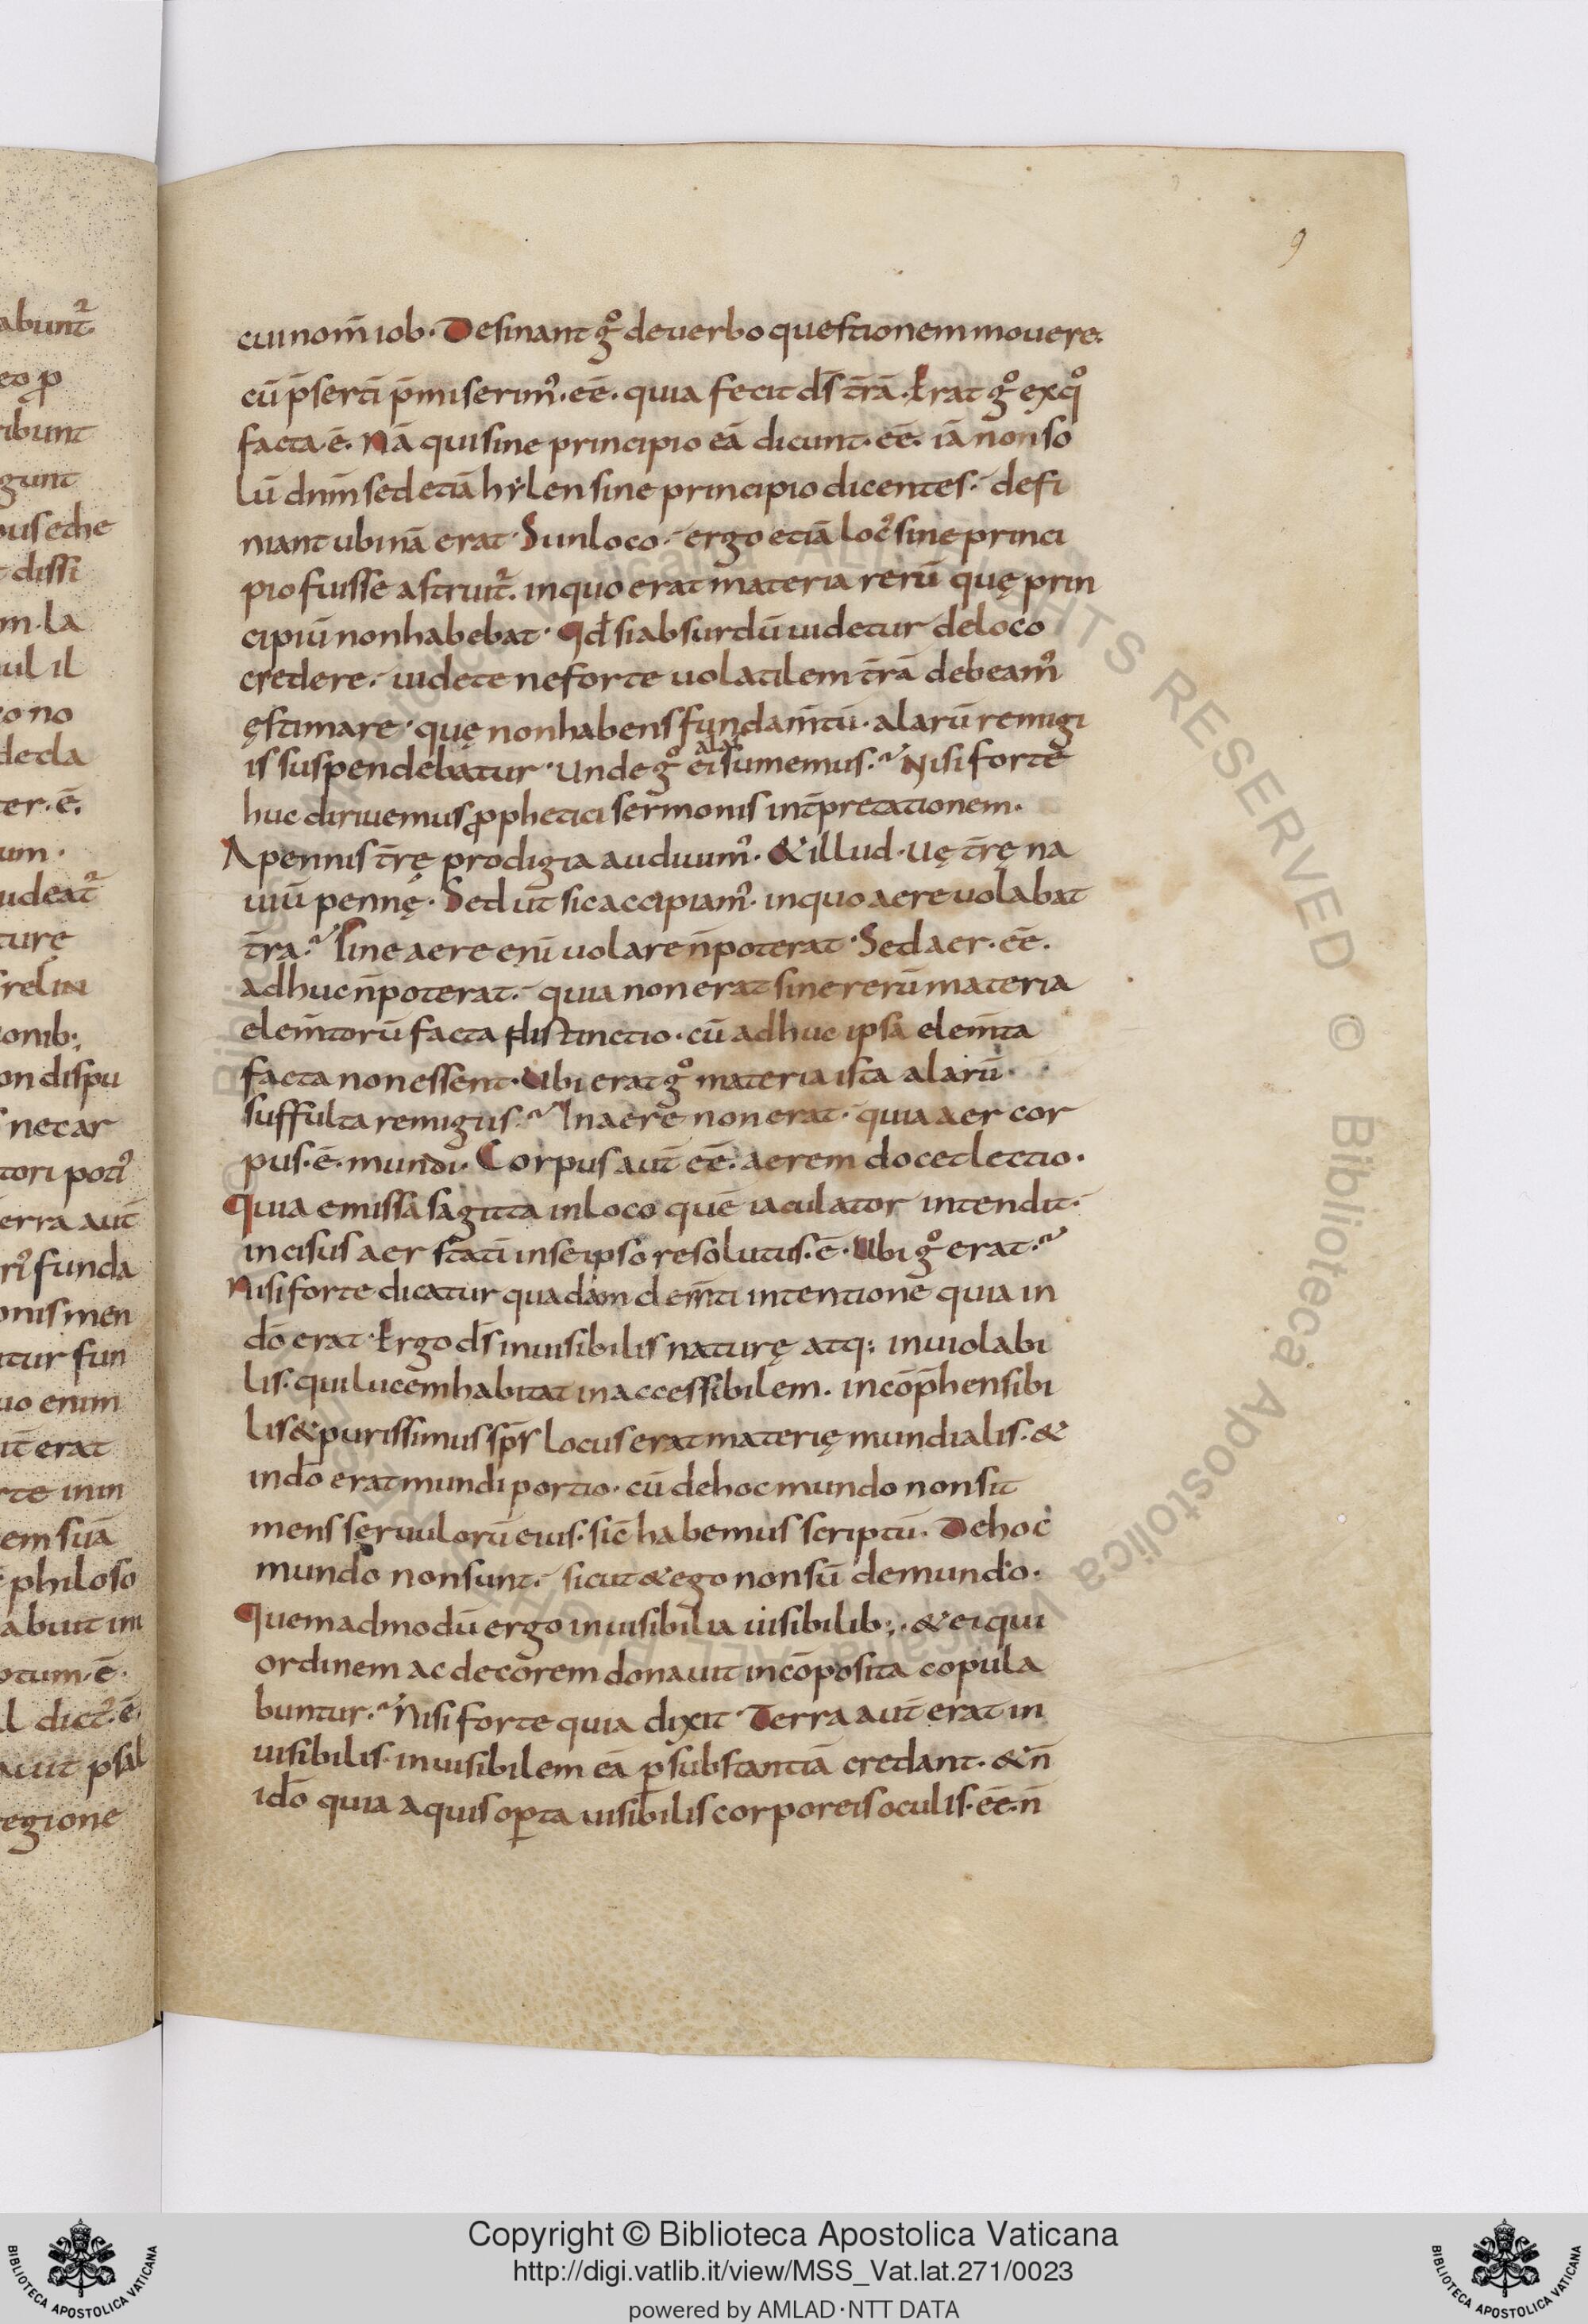 9
cui nom̄ iob. Desinant gͦ de uerbo questionem mouere.
cū p̄sertī p̄miserimꝰ. eē. quia fecit ds̄ tr̄ā. Erat gͦ ex qͦ
facta. ē. Nā qui sine principio eā dicunt. eē. iā non so
lū dnm̄ sed etiā hylen sine principio dicentes. defi
niant ubinā erat. Si in loco. ergo etiā locꝰ sine princi
pio fuisse astruit᷑. in quo erat materia rerū quę prin
cipiū non habebat. Qd̄ si absurdū uidetur de loco
credere. uidete ne forte uolatilem tr̄ā debeamꝰ
ęstimare. quę non habens fundam̄tū. alarū remigi
is suspendebatur. Unde gͦ ei alas sumemus. Nisi forte
huc diriuemus ꝓphetici sermonis int̄pretationem.
A pennis tr̄ę prodigia audiuimꝰ. & illud. uę tr̄ę na
uiū pennę. Sed ut sic accipiamꝰ. in quo aere uolabat
tr̄a. sine aere enī uolare n̄ poterat. Sed aer. eē.
adhuc n̄ poterat. quia non erat sine rerū materia
elem̄torū facta distinctio. cū adhuc ipsa elem̄ta
facta non essent. Ubi erat gͦ materia ista alarū
suffulta remigiis. In aere non erat. quia aer cor
pus. ē. mundi. Corpus aut̄ eē. aerem docet lectio.
Quia emissa sagitta in loco quē iaculator intendit.
incisus aer statī in se ipso resolutus. ē. Ubi gͦ erat.
Nisi forte dicatur quadam dem̄ti intentione quia in
dō erat. Ergo ds̄ inuisibilis naturę atq; inuiolabi
lis. qui lucem habitat inaccessibilem. incōp̄hensibi
lis & purissimus sp̄s locus erat materię mundialis. &
in dō erat mundi portio. cū de hoc mundo non sit
mens seruulorū eius. sic̄ habemus scriptū. De hoc
mundo non sunt. sicut & ego non sū de mundo.
Quemadmodū ergo inuisibilia uisibilib;. & ei qui
ordinem ac decorem donauit incōposita copula
buntur. Nisi forte quia dixit. Terra aut̄ erat in
uisibilis. inuisibilem eā ꝑ substantiā credant. & n̄
idō quia aquis oꝑta uisibilis corporeis oculis. eē. n̄
abunt᷑.
ribunt
gunt
dissi
m. la
ul il
co no
ter. ē.
um.
udeat᷑
turę
relin
onib;
on dispu
nec ar
tori potꝰ
erra aut̄
funda
onis men
tur fun
uo enim
it erat
rte in in
em suā
philoso
abuit im
otum. ē.
l dict᷑. ē
auit psal
regione
Copyright © Biblioteca Apostolica Vaticana
http://digi.vatlib.it/view/MSS_Vat.lat.271/0023
powered by AMLAD·NTT DATA
BIBLIOTECA APOSTOLICA VATICANA
BIBLIOTECA APOSTOLICA VATICANA